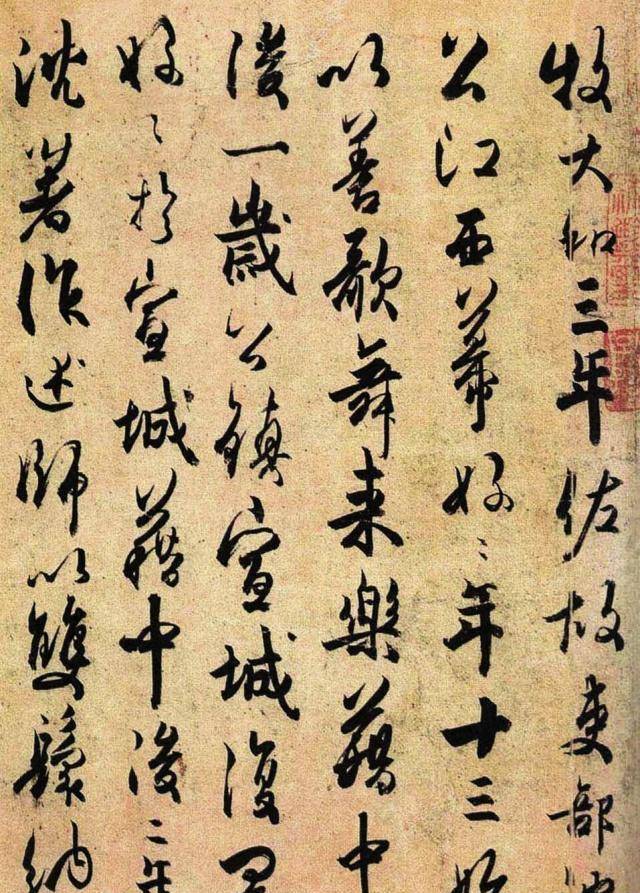 牧大和三年佐故吏部
公江西幕好〻年十三始
以善歌舞来樂籍中
後一歲公鎮宣城復
好〻於宣城籍中後二年
沈著作述師以雙鬟納